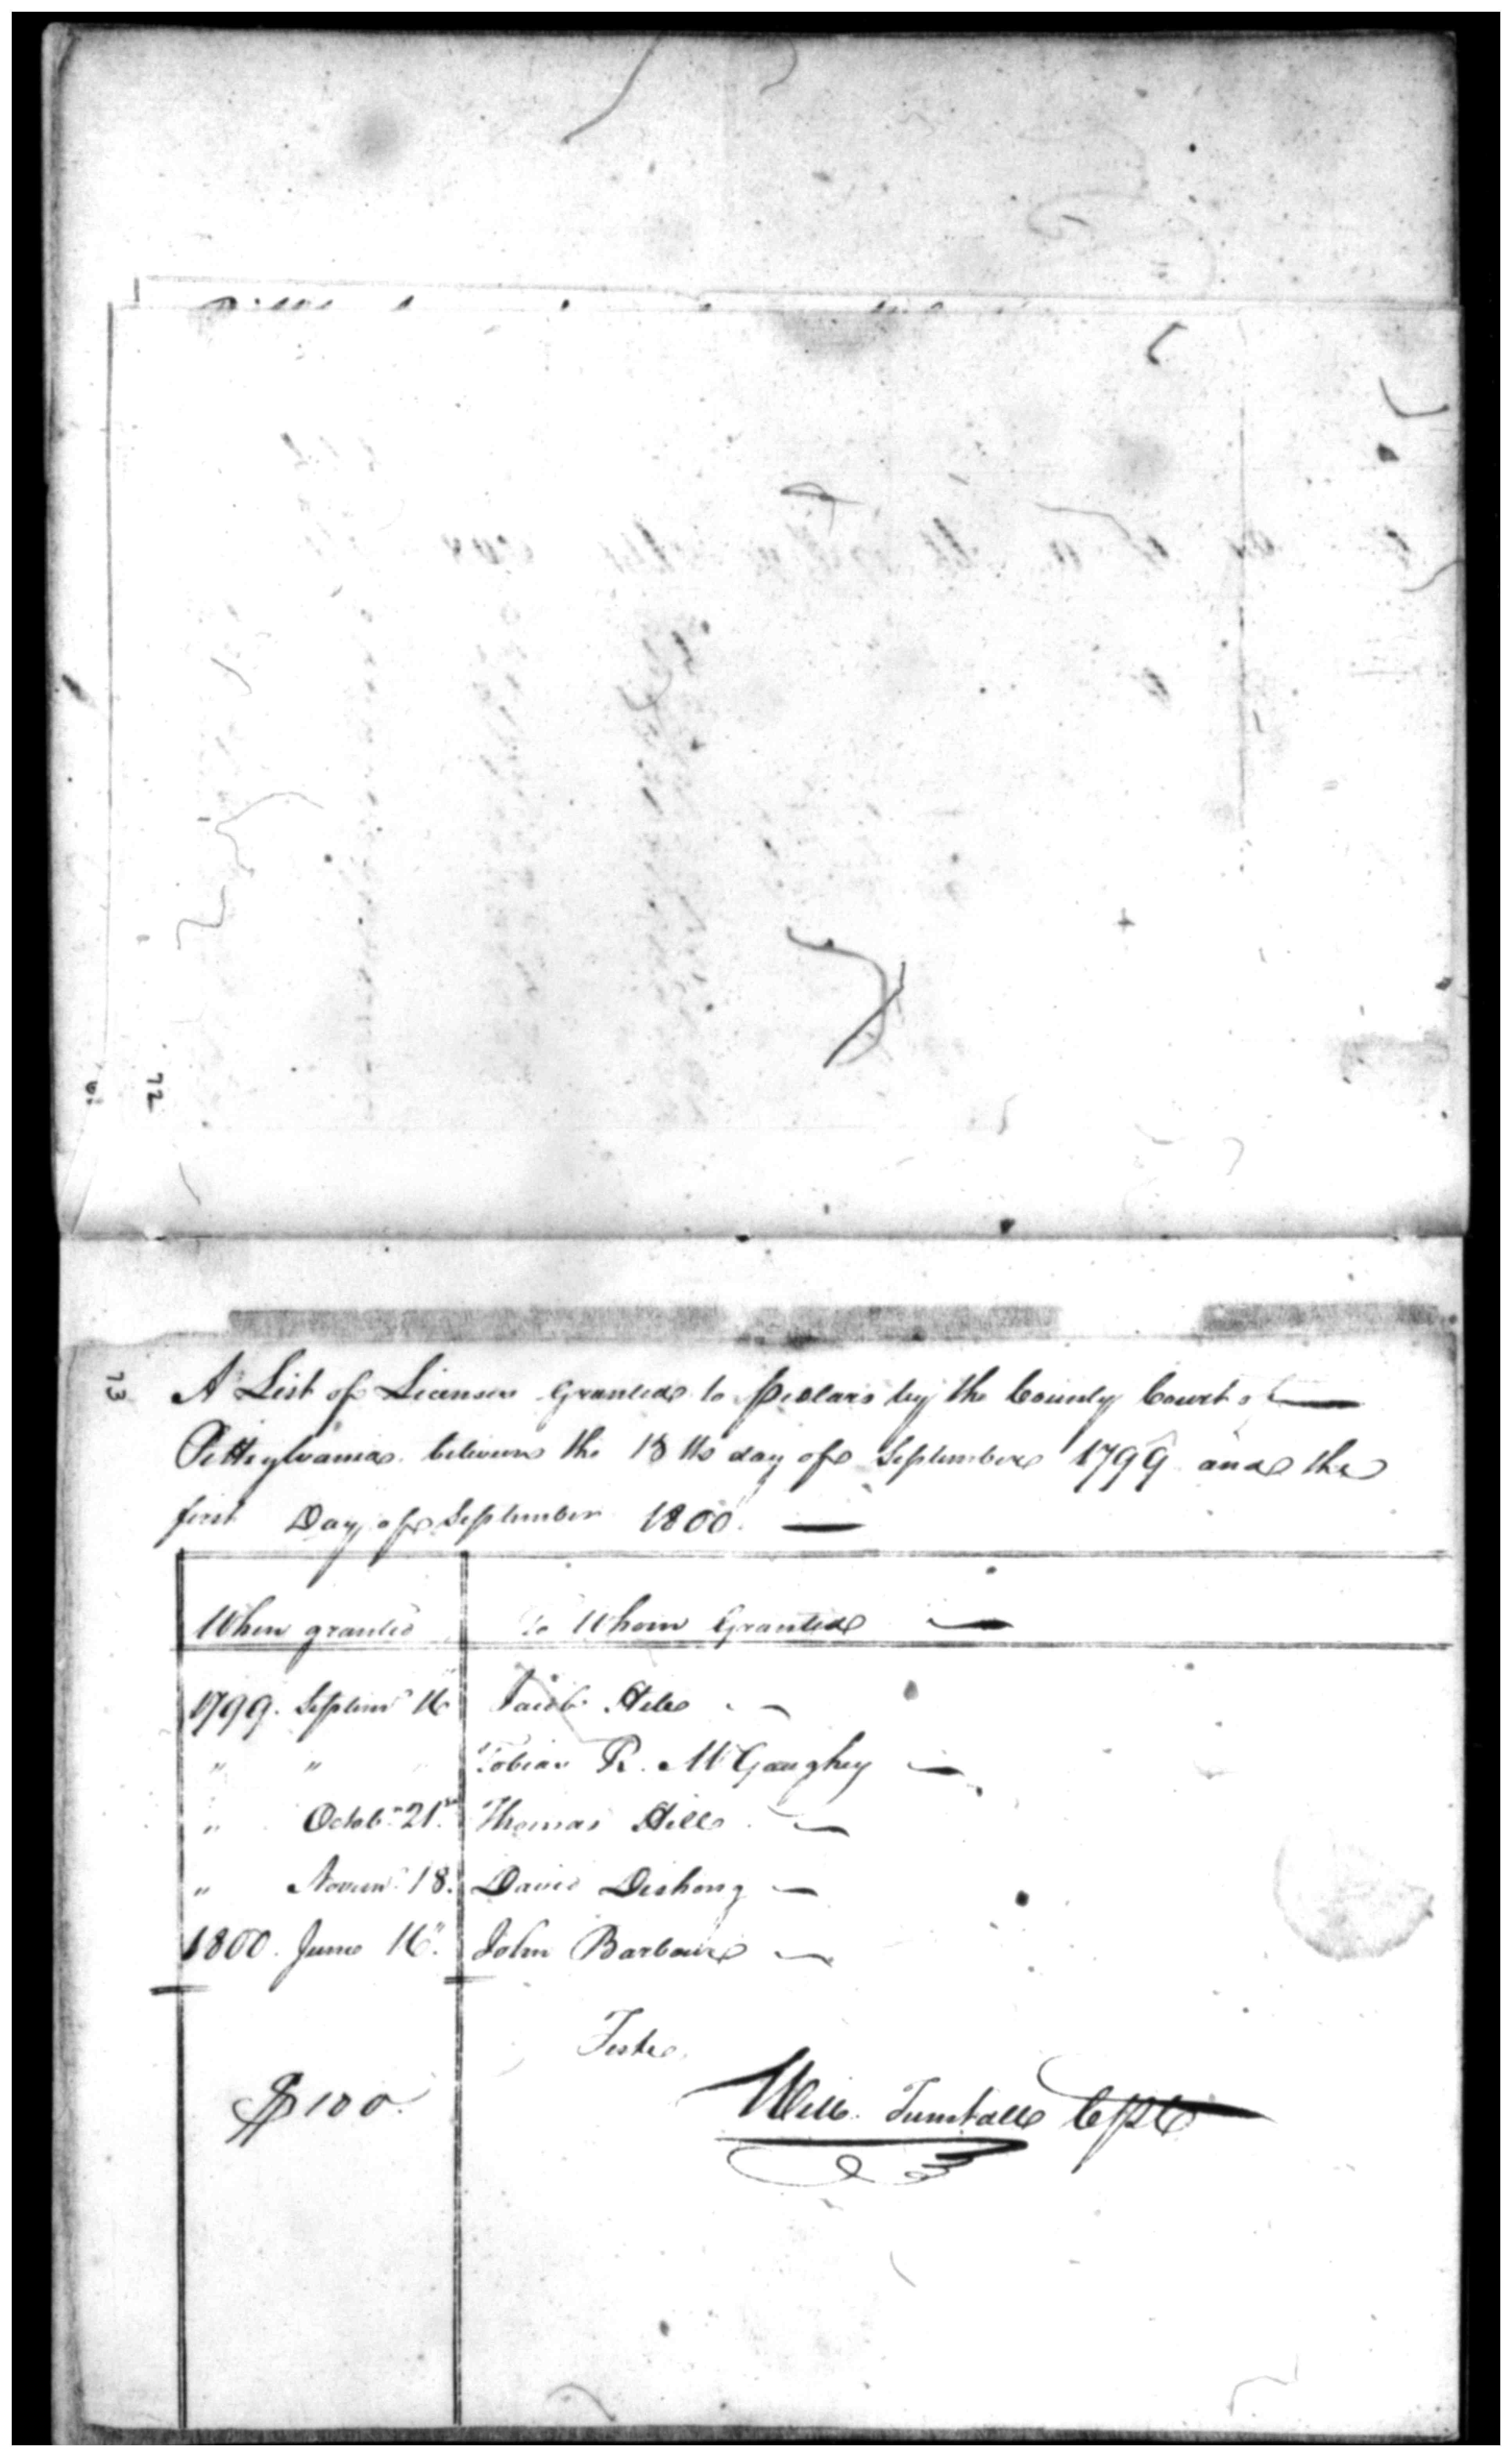 72
73
A List of Licenses Granted to pedlars by the County Court of
Pittsylvania between the 18th day of September 1799 and the
first Day of September 1800.
When granted To Whom Granted
1799. Septemr 16 Jacob
" " Tobias R. McGaughey
" Octobr 21st Thomas Hill
" Novemr 18. David Dishong
1800. June 16". John Barbour
Teste
$100. Will Tunstall CPC